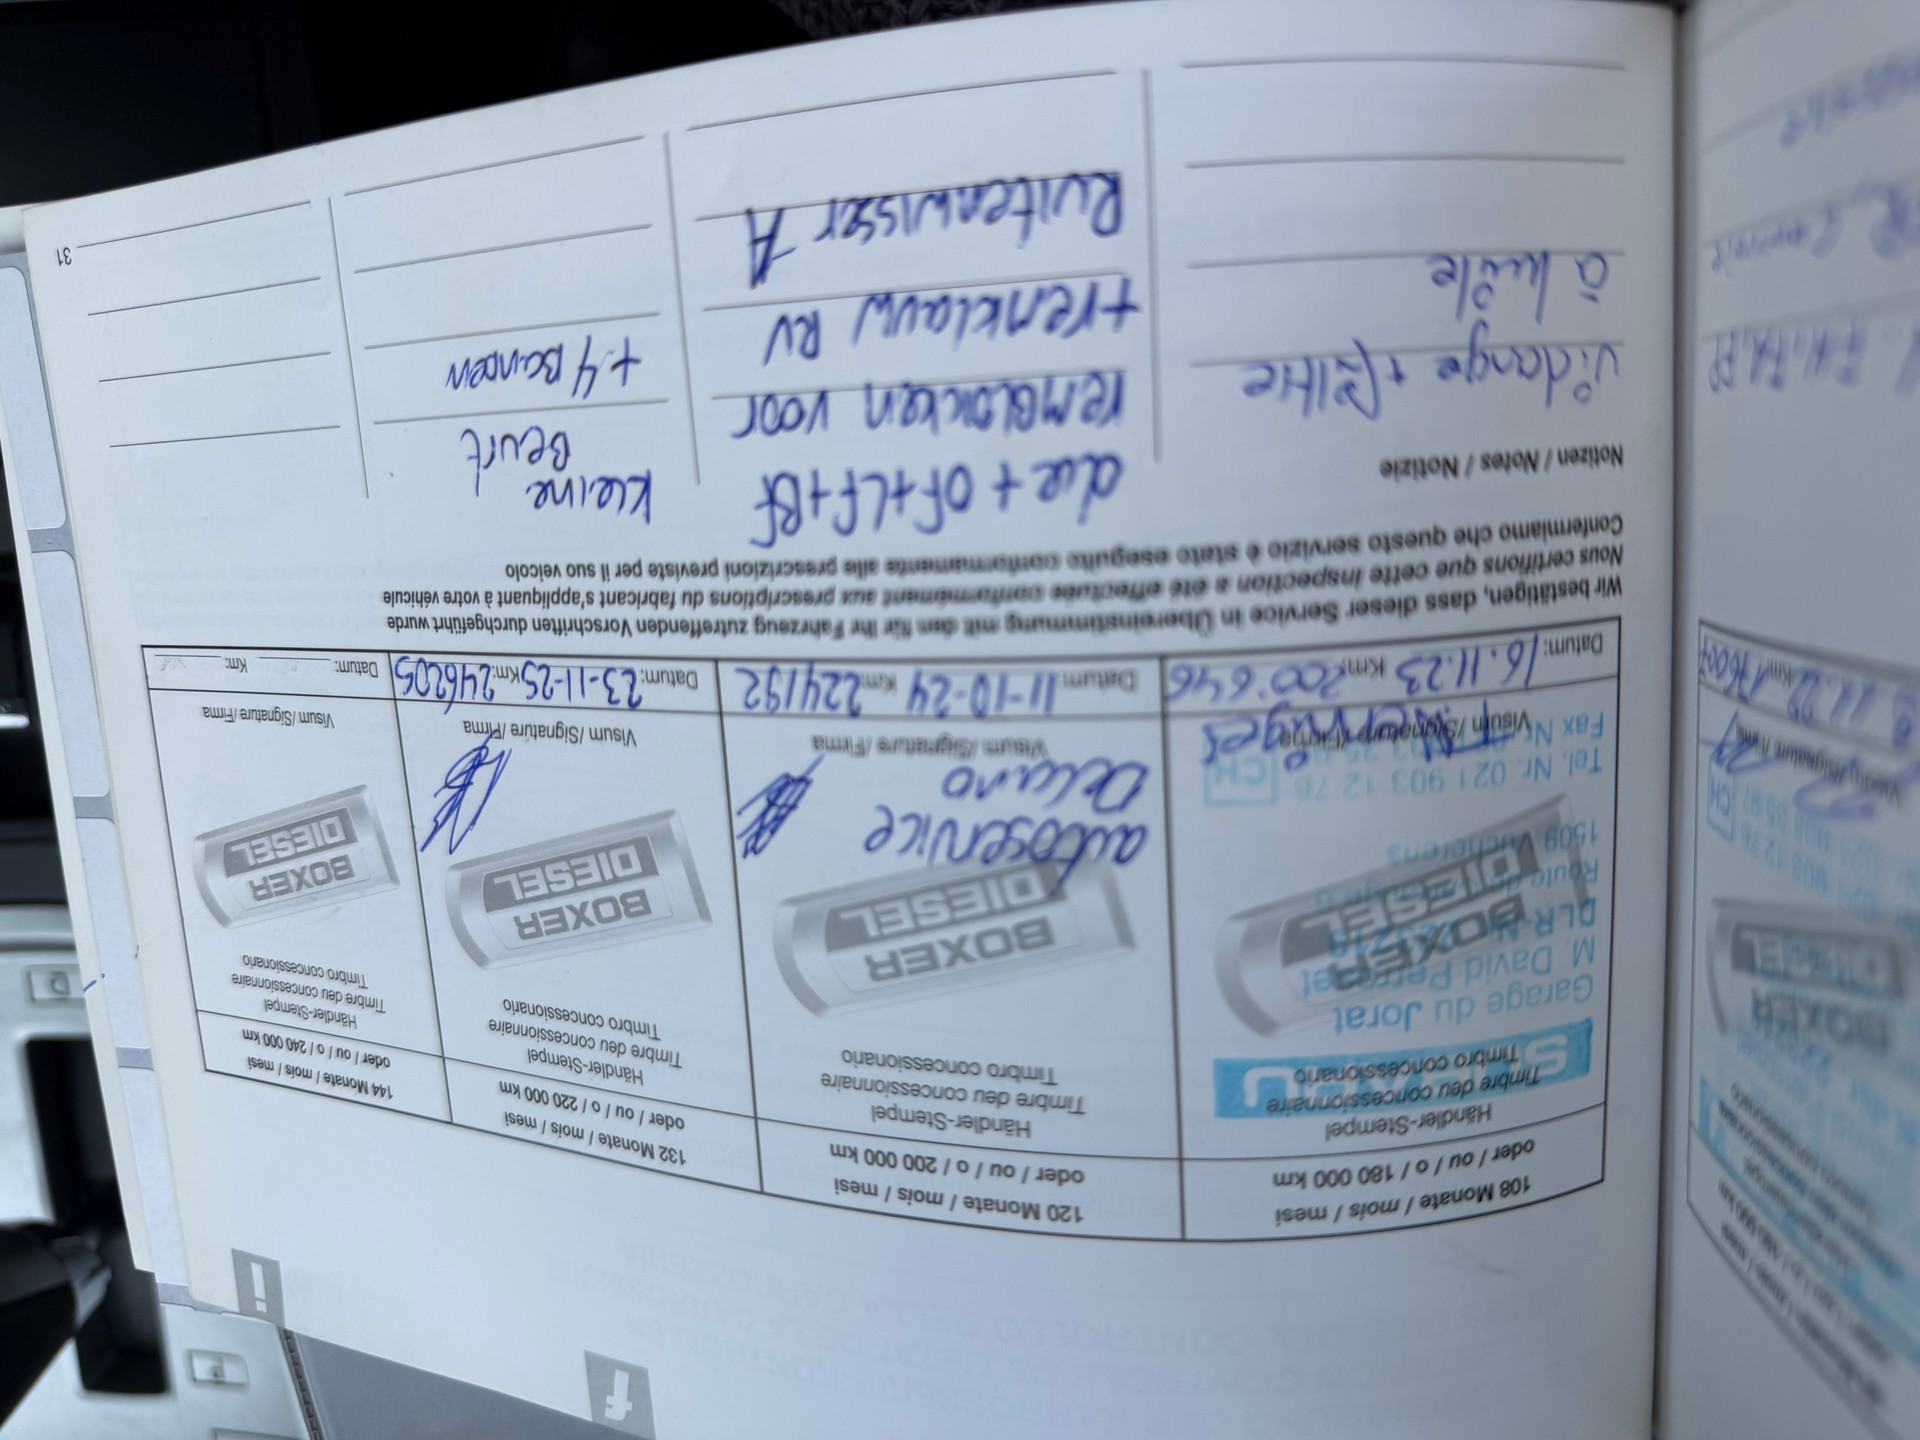 108 Monate / mois / mesi
oder / ou / o / 180 000 km
Händler-Stempel
Timbre deu concessionnaire
Timbro concessionario
Garage du Jorat
M. David Perroset
DLR-Nr.
Route de
1509 Vucherens
Tel. Nr. 021 903 12 76
Fax Nr.
CH
BOXER
DIESEL
Visum/Signature/Firma
Datum: 16.11.23 Km: 200'646
120 Monate / mois / mesi
oder / ou / o / 200 000 km
Händler-Stempel
Timbre deu concessionnaire
Timbro concessionario
BOXER
DIESEL
autoservice
Delano
Visum/Signature/Firma
Datum: 11-10-24 Km: 224192
132 Monate / mois / mesi
oder / ou / o / 220 000 km
Händler-Stempel
Timbre deu concessionnaire
Timbro concessionario
BOXER
DIESEL
Visum/Signature/Firma
Datum: 23-11-25 Km: 246205
144 Monate / mois / mesi
oder / ou / o / 240 000 km
Händler-Stempel
Timbre deu concessionnaire
Timbro concessionario
BOXER
DIESEL
Visum/Signature/Firma
Datum: Km:
Wir bestätigen, dass dieser Service in Übereinstimmung mit den für Ihr Fahrzeug zutreffenden Vorschriften durchgeführt wurde
Nous certifions que cette inspection a été effectuée conformément aux prescriptions du fabricant s'appliquant à votre véhicule
Confermiamo che questo servizio è stato eseguito conformamente alle prescrizioni previste per il suo veicolo
Notizen / Notes / Notizie
vidange + filtre
à huile
olie + OF+LF+BF
remblokken voor
+remklauw RV
Ruitenwisser A
kleine
Beurt
+ 4 Banden
31